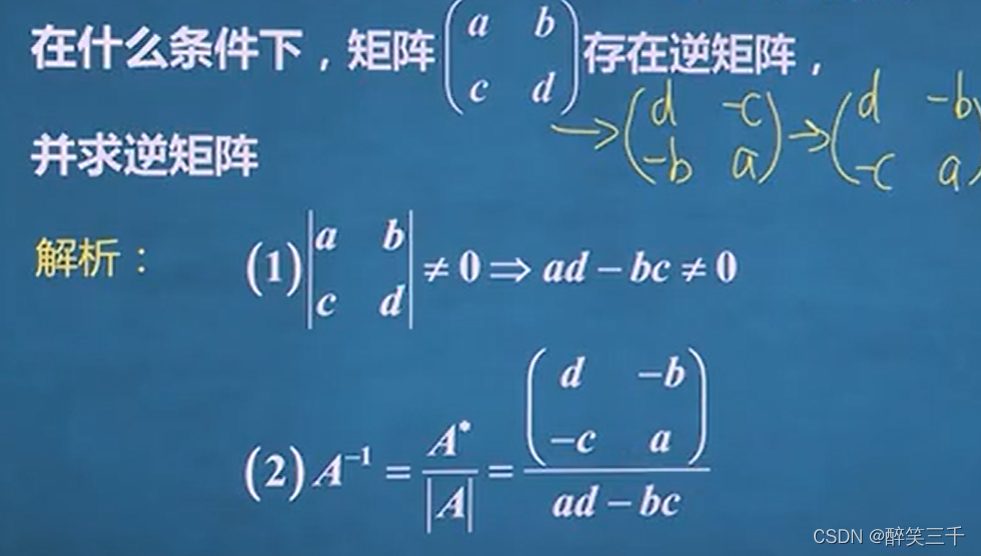 在什么条件下，矩阵(a b
c d)存在逆矩阵，
→(d -c
-b a)→(d -b
-c a)
并求逆矩阵
解析：
(1)|a b
c d|≠0⇒ad−bc≠0
(2)A⁻¹=A*/|A|=(d −b
−c a)/ad−bc
CSDN @醉笑三千